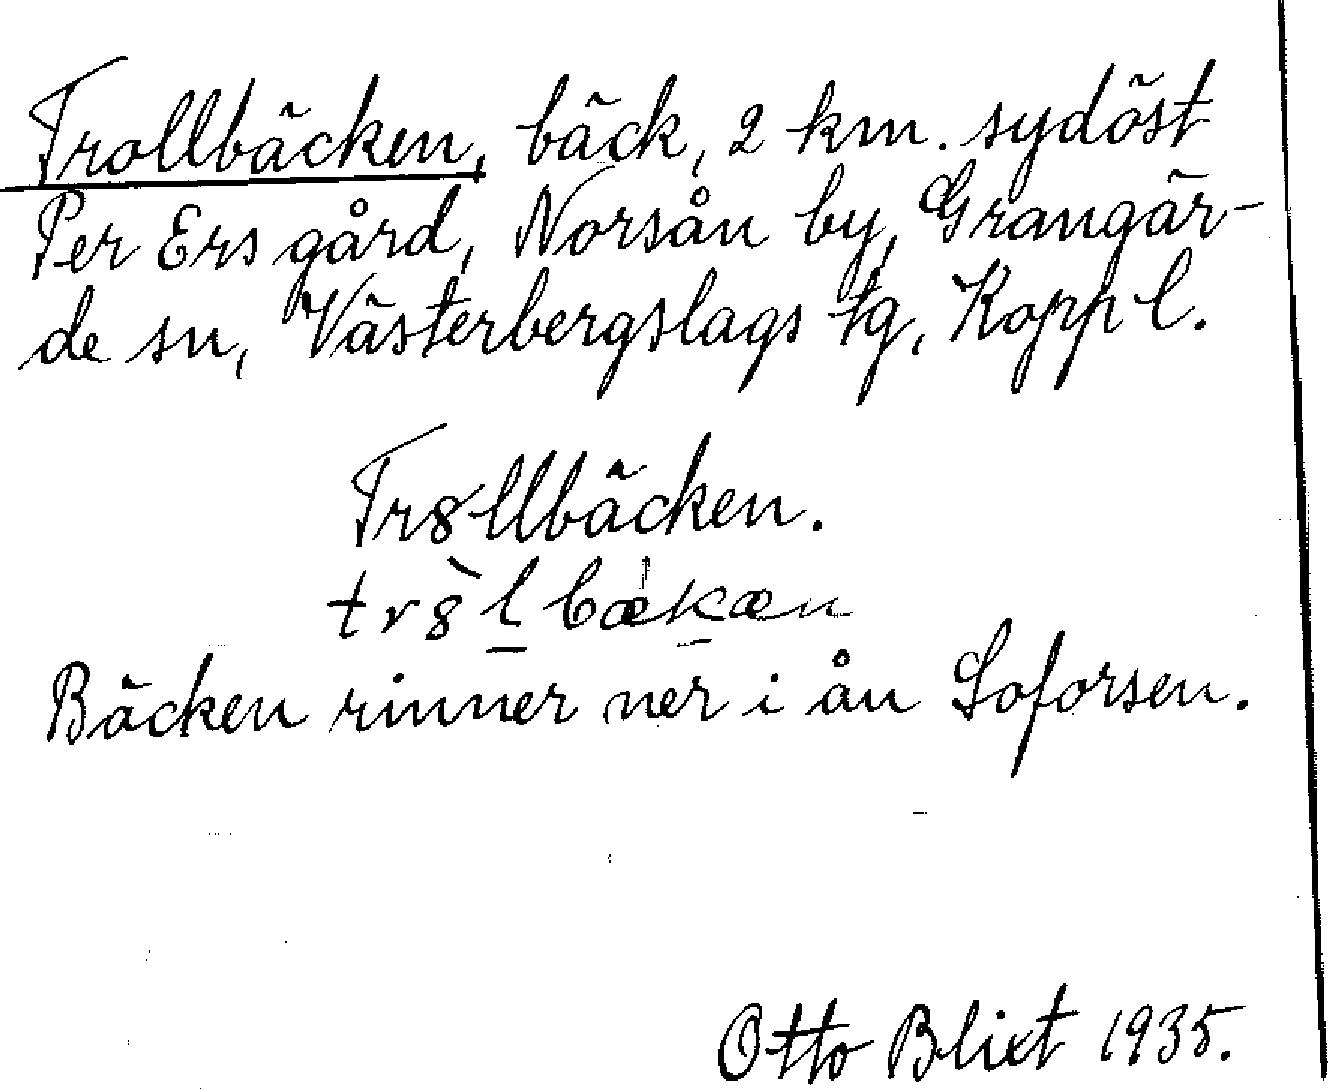 Trollbäcken, bäck, 2 km. sydöst
Per Ers gård, Norsån by, Grangär-
de sn, Västerbergslags tg, Kopp l.
Tr8llbäcken.
tr8̀l̲bækæn
Bäcken rinner ner i ån Soforsen.
Otto Blixt 1935.